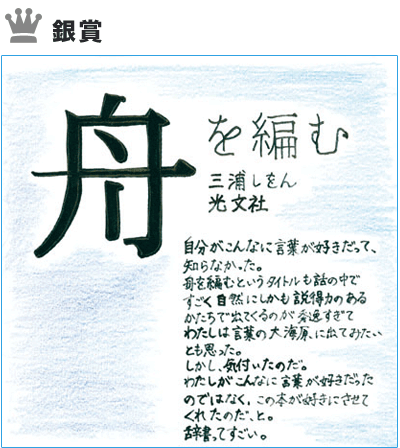 銀賞
舟を編む
三浦しをん
光文社
自分がこんなに言葉が好きだって、
知らなかった。
舟を編むというタイトルも話の中で
すごく自然にしかも説得力のある
かたちで出てくるのが秀逸すぎて
わたしは言葉の大海原に出てみたい
とも思った。
しかし、気付いたのだ。
わたしがこんなに言葉が好きだった
のではなく、この本が好きにさせて
くれたのだ、と。
辞書ってすごい。